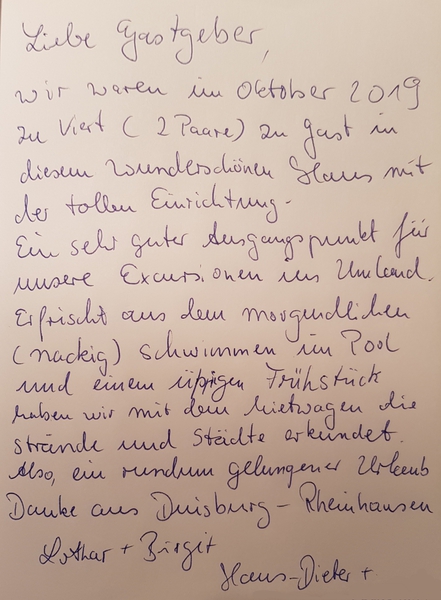 Liebe Gastgeber,
wir waren im Oktober 2019
zu Viert (2 Paare) zu Gast in
diesem wunderschönen Haus mit
der tollen Einrichtung.
Ein sehr guter Ausgangspunkt für
unsere Excursionen ins Umland.
Erfrischt aus dem morgendlichen
(nackig) schwimmen im Pool
und einem üppigen Frühstück
haben wir mit dem Mietwagen die
Strände und Städte erkundet.
Also, ein rundum gelungener Urlaub
Danke aus Duisburg - Rheinhausen
Lothar + Birgit
Hans-Dieter +